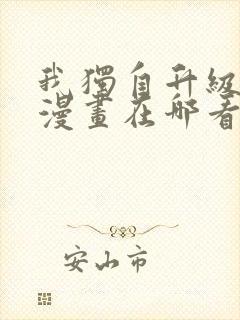 我獨自升級
漫畫在哪看
安山市